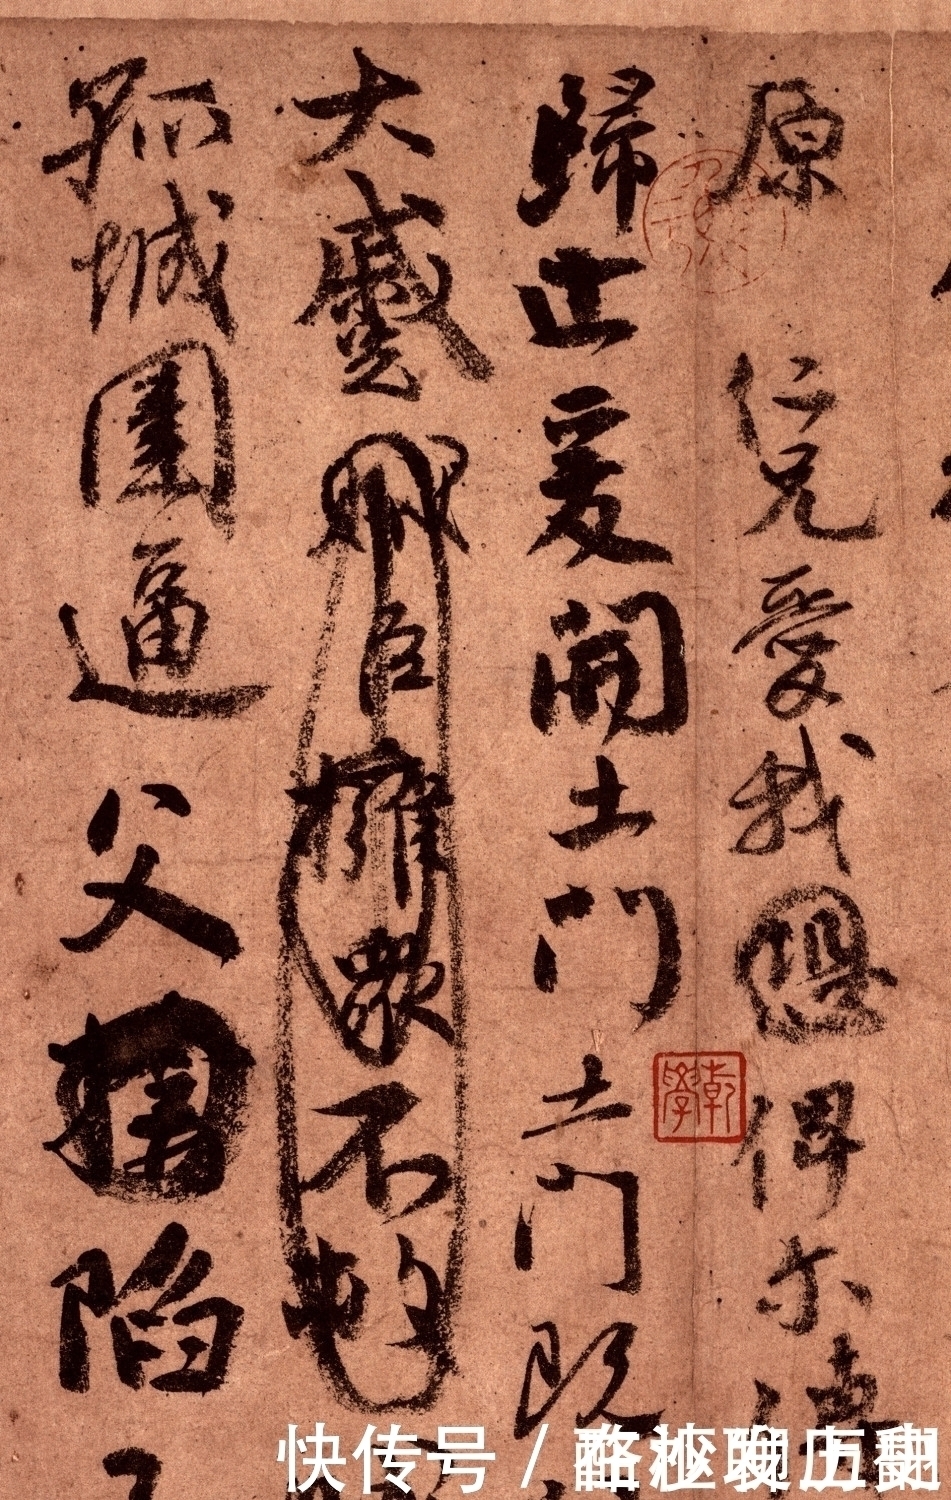 原仁兄愛我俾尔傳
歸止爰開土門土門既
大蹙賊臣擁衆不救
孤城圍逼父陷
乾學
快传号 /